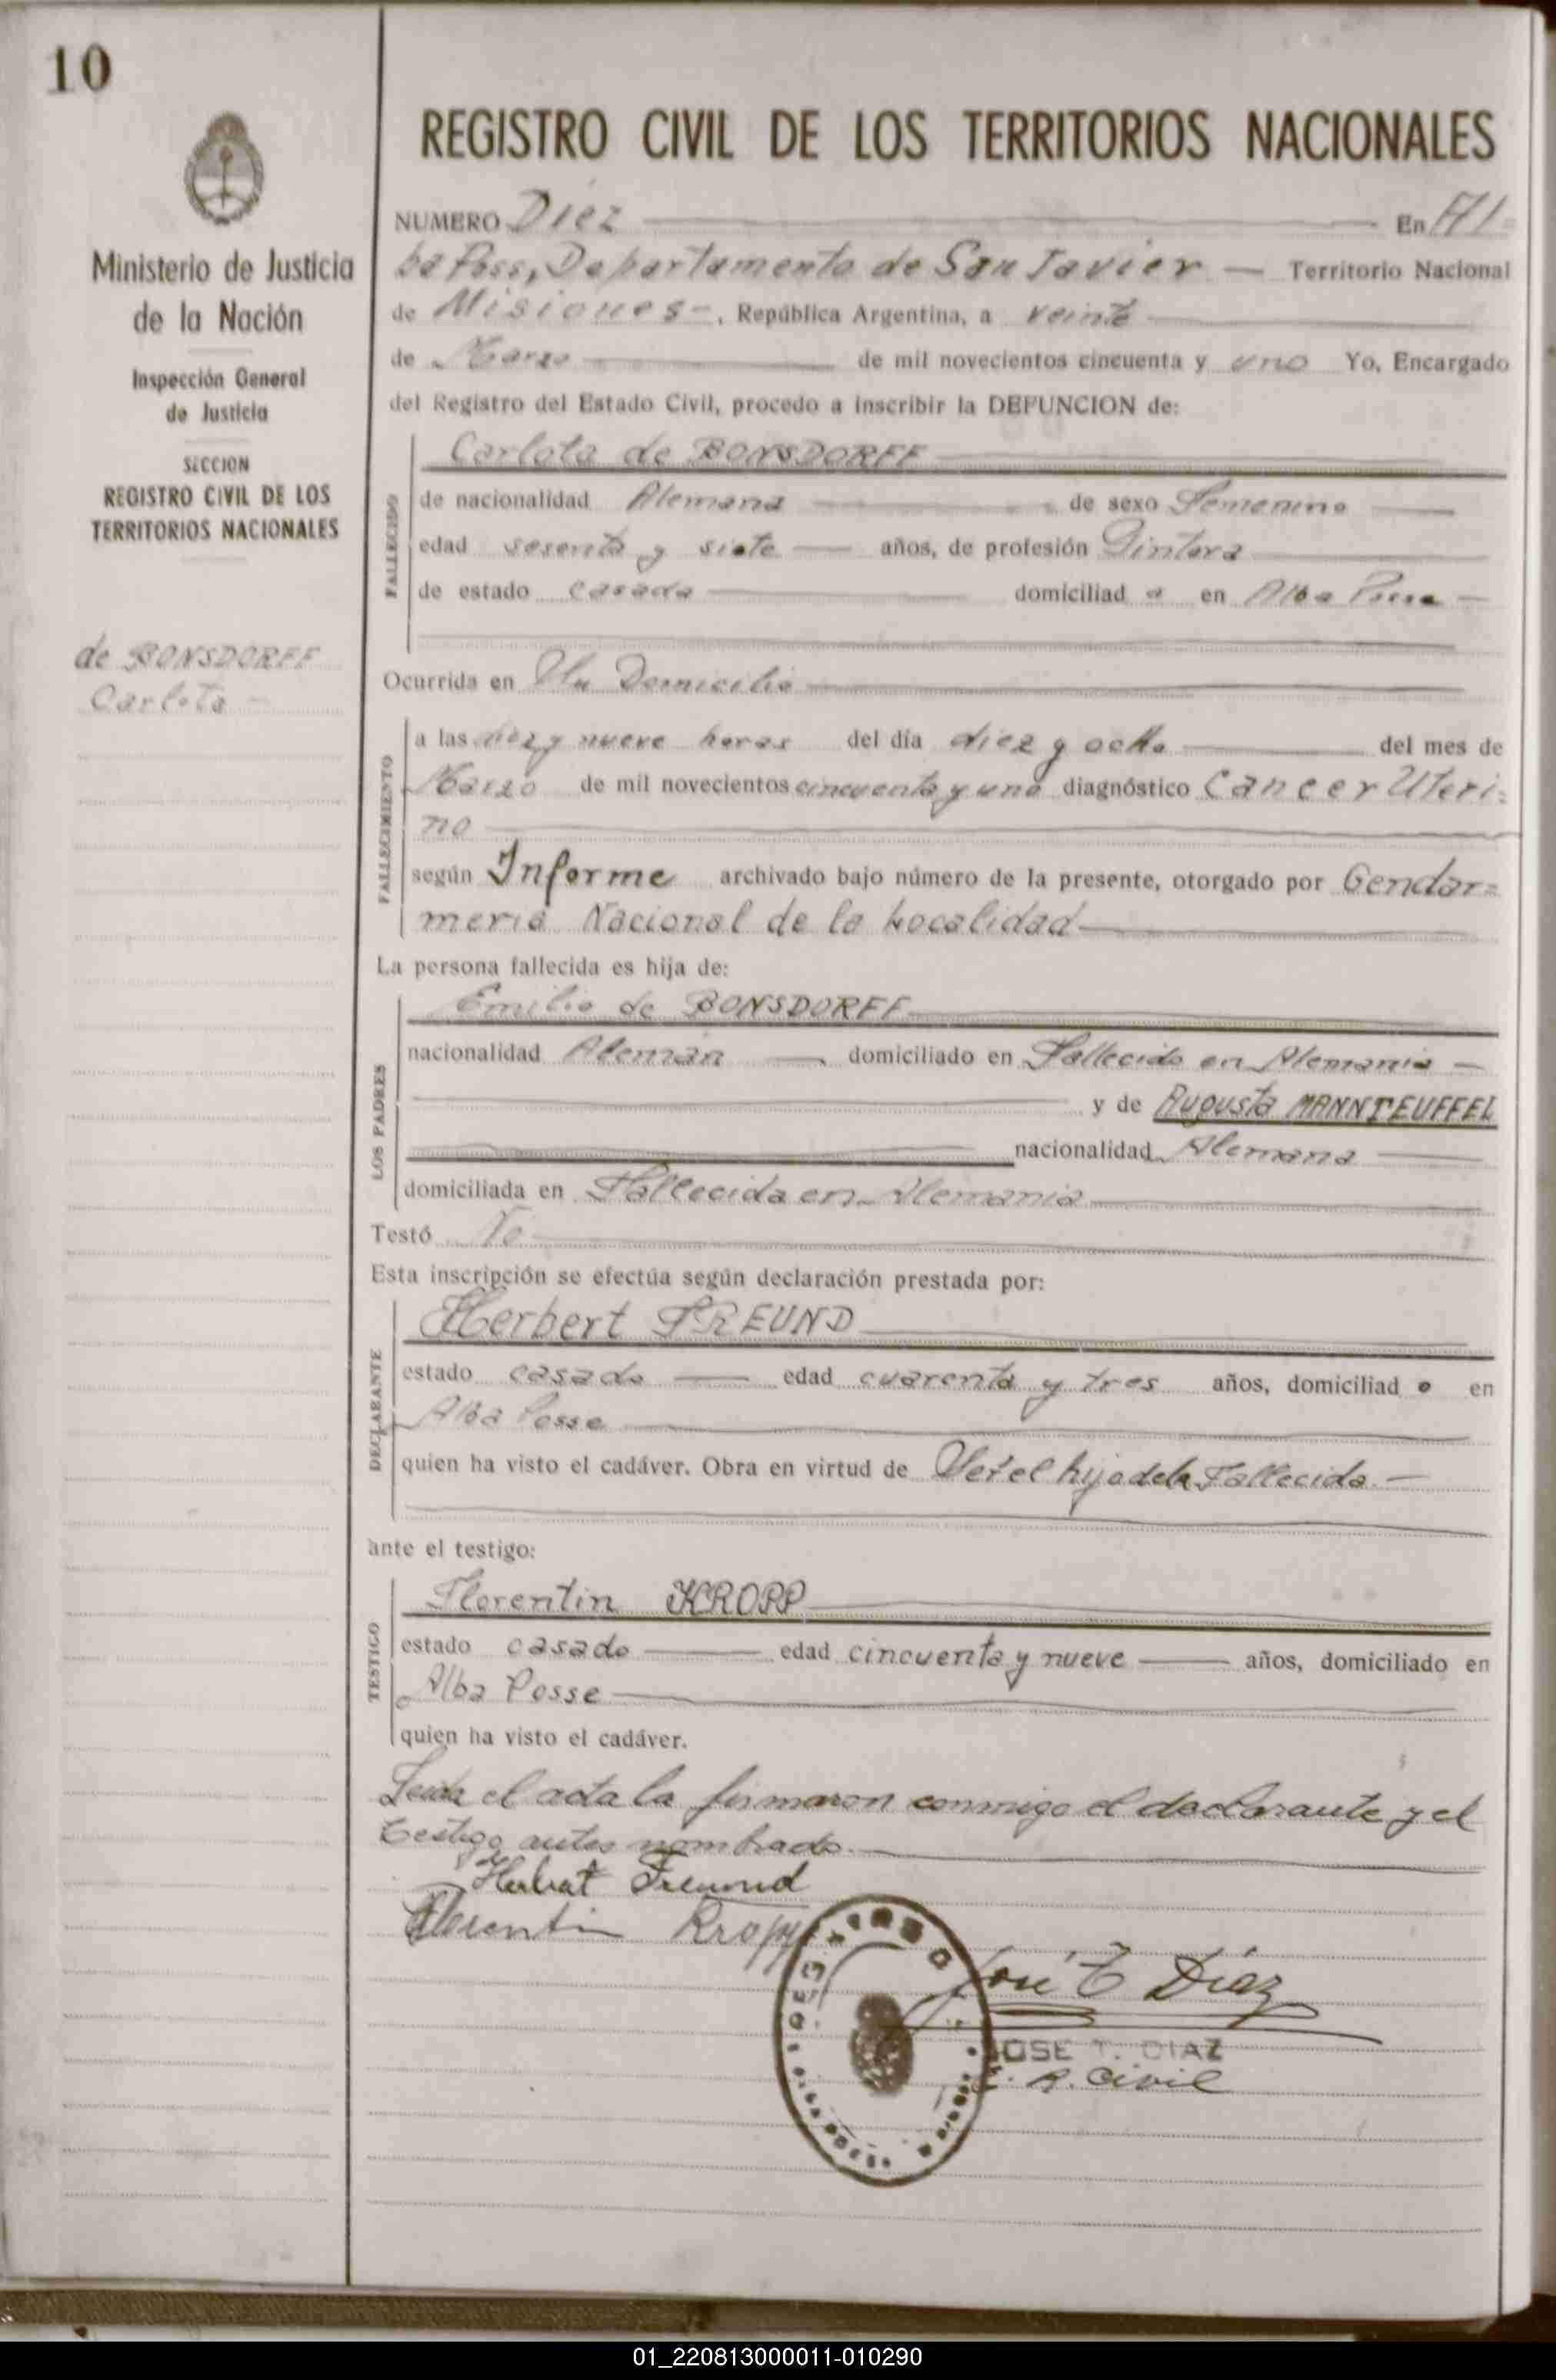 10
REGISTRO CIVIL DE LOS TERRITORIOS NACIONALES
Ministerio de Justicia
de la Nación
Inspección General
de Justicia
SECCION
REGISTRO CIVIL DE LOS
TERRITORIOS NACIONALES
de BONSDORFF
Carlota -
NUMERO Diez — En Al=
ba Poss, Departamento de San Javier — Territorio Nacional
de Misiones -, República Argentina, a veinte
de Marzo de mil novecientos cincuenta y uno Yo, Encargado
del Registro del Estado Civil, procedo a inscribir la DEFUNCION de:
FALLECIDO
Carlota de BONSDORFF
de nacionalidad Alemana de sexo Femenino
edad sesenta y siete años, de profesión Pintora
de estado casada domiciliad a en Alba Posse —
Ocurrida en Su Domicilio
FALLECIMIENTO
a las diez y nueve horas del día diez y ocho del mes de
Marzo de mil novecientos cincuenta y uno diagnóstico Cancer Uteri=
no
según Informe archivado bajo número de la presente, otorgado por Gendar=
meria Nacional de la Localidad
La persona fallecida es hija de:
LOS PADRES
Emilio de BONSDORFF
nacionalidad Alemán domiciliado en Fallecido en Alemania —
y de Augusta MANNTEUFFEL
nacionalidad Alemana
domiciliada en Fallecida en Alemania
Testó No
Esta inscripción se efectúa según declaración prestada por:
DECLARANTE
Herbert FREUND
estado casado edad cuarenta y tres años, domiciliad o en
Alba Posse
quien ha visto el cadáver. Obra en virtud de Ser el hijo de la Fallecida. —
ante el testigo:
TESTIGO
Florentin KROPP
estado casado edad cincuenta y nueve años, domiciliado en
Alba Posse
quien ha visto el cadáver.
Leida el acta la firmaron conmigo el declarante y el
testigo antes nombrado.
Herbert Freund
Florentin Kropp
José T Díaz
JOSE T. DIAZ
R. Civil
01_220813000011-010290